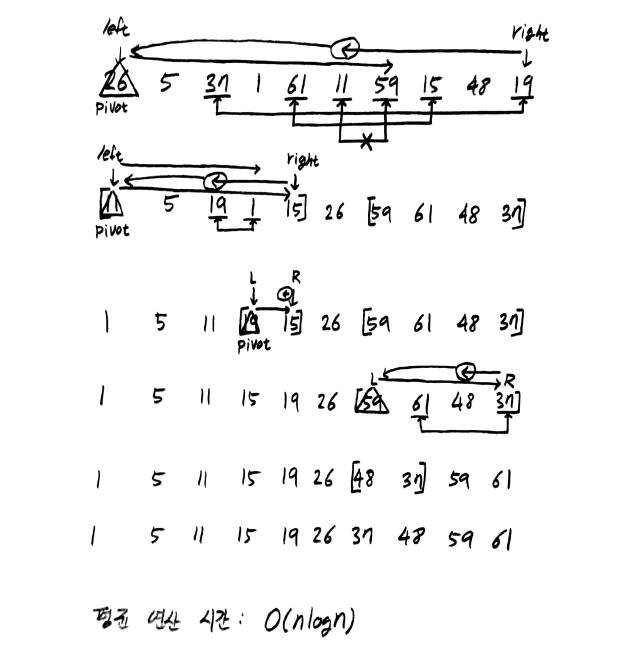 left right
26 5 37 1 61 11 59 15 48 19
pivot
x
left right
[11 5 19 1 15] 26 [59 61 48 37]
pivot
L R
1 5 11 [19 15] 26 [59 61 48 37]
pivot
L R
1 5 11 15 19 26 [59 61 48 37]
1 5 11 15 19 26 [48 37] 59 61
1 5 11 15 19 26 37 48 59 61
평균 연산 시간: O(nlogn)